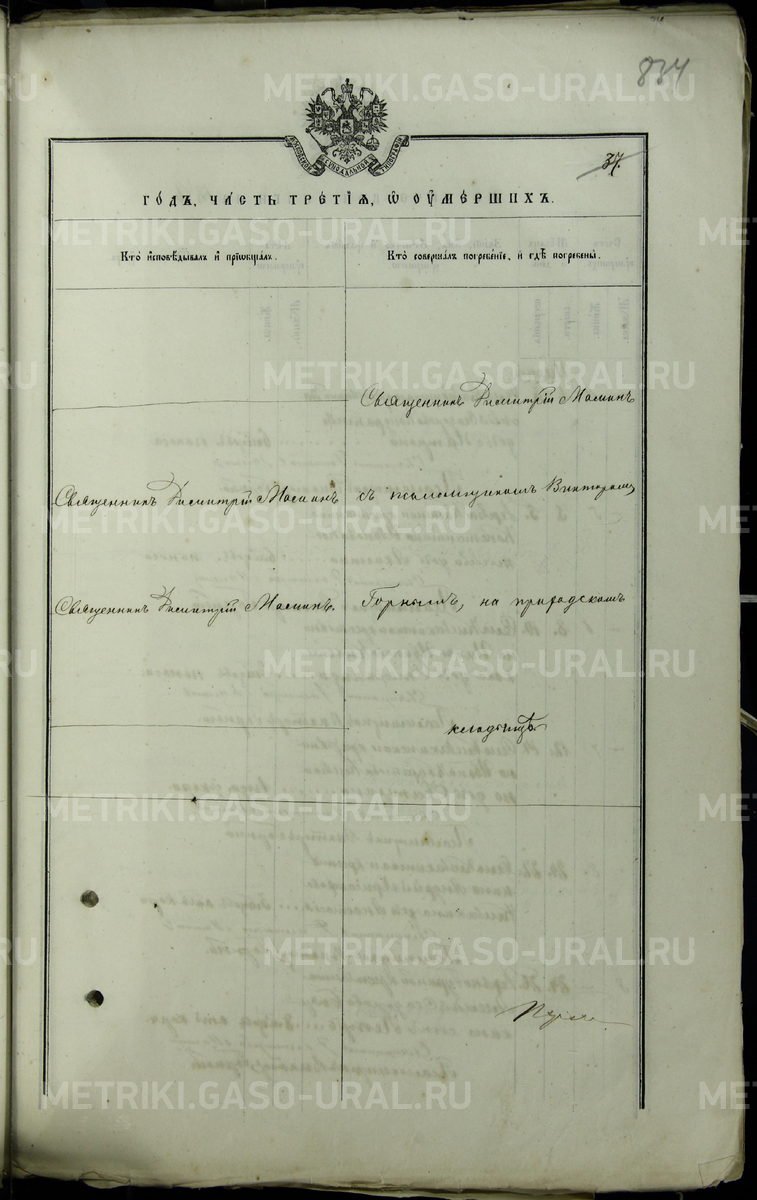 834
МОСКОВСКОЙ СѴНОДАЛЬНОЙ ТИПОГРАФІИ
37.
ГО́ДЪ, ЧА́СТЬ ТРЕ́ТІѦ, Ѡ҆ ОУ҆МЕ́РШИХЪ.
Кто̀ и҆сповѣ́дывалъ и҆ прїѡбща́лъ.
Кто̀ соверша́лъ погребе́нїе, и҆ гдѣ̀ погребены̀.
Священникъ Димитрій Маминъ
Священникъ Димитрій Маминъ
съ псаломщикомъ Викторомъ
Священникъ Димитрій Маминъ.
Горнымъ, на приходскомъ
кладбищѣ
METRIKI.GASO-URAL.RU